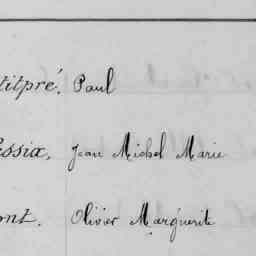 titpré, Paul
essix, Jean Michel Marie
ont. Olivier Marguerite